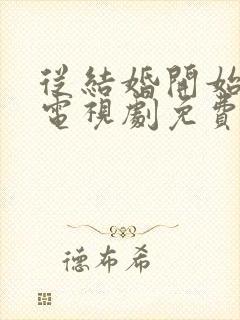 從結婚開始
電視劇免費
德布希